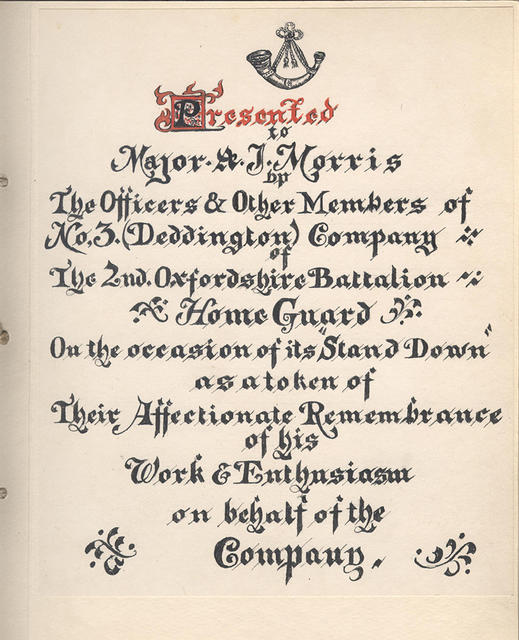 Presented
to
Major. A. J. Morris
by
The Officers & Other Members of
No. 3. (Deddington) Company
of
The 2nd. Oxfordshire Battalion
Home Guard
On the occasion of its "Stand Down"
as a token of
Their Affectionate Remembrance
of his
Work & Enthusiasm
on behalf of the
Company.